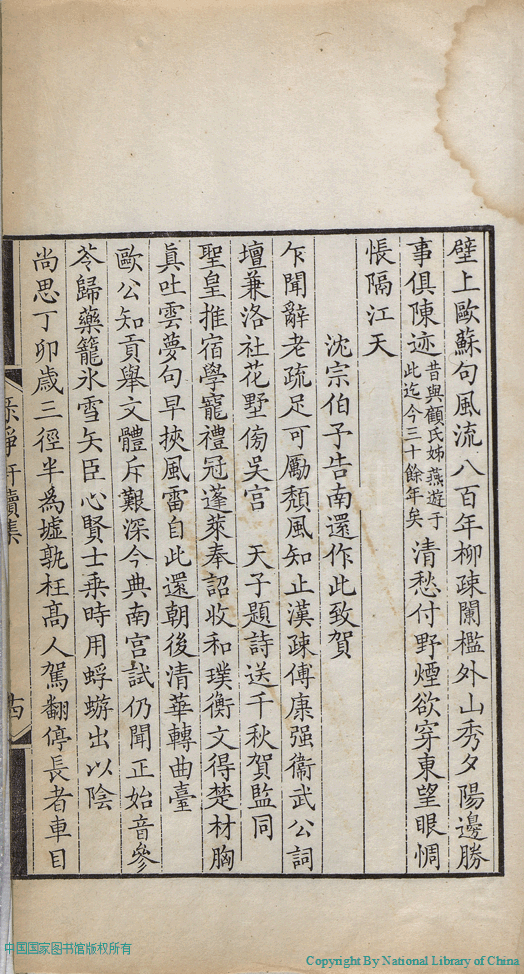 壁上歐蘇句風流八百年柳疎闌檻外山秀夕陽邊勝
事俱陳迹昔與顧氏姊燕遊于此迄今三十餘年矣清愁付野煙欲穿東望眼惆
悵隔江天
沈宗伯予告南還作此致賀
乍聞辭老疏足可勵頽風知止漢疎傅康强衞武公詞
壇兼洛社花墅傍吳宫 天子題詩送千秋賀監同
聖皇推宿學寵禮冠蓬萊奉詔收和璞衡文得楚材胸
眞吐雲夢句早挾風雷自此還朝後清華轉曲臺
歐公知貢舉文體斥艱深今典南宫試仍聞正始音參
苓歸藥籠氷雪矢臣心賢士乗時用蜉蝣出以陰
尚思丁卯歲三徑半為墟孰枉高人駕翻停長者車目
續集
四
中国国家图书馆版权所有
Copyright By National Library of China